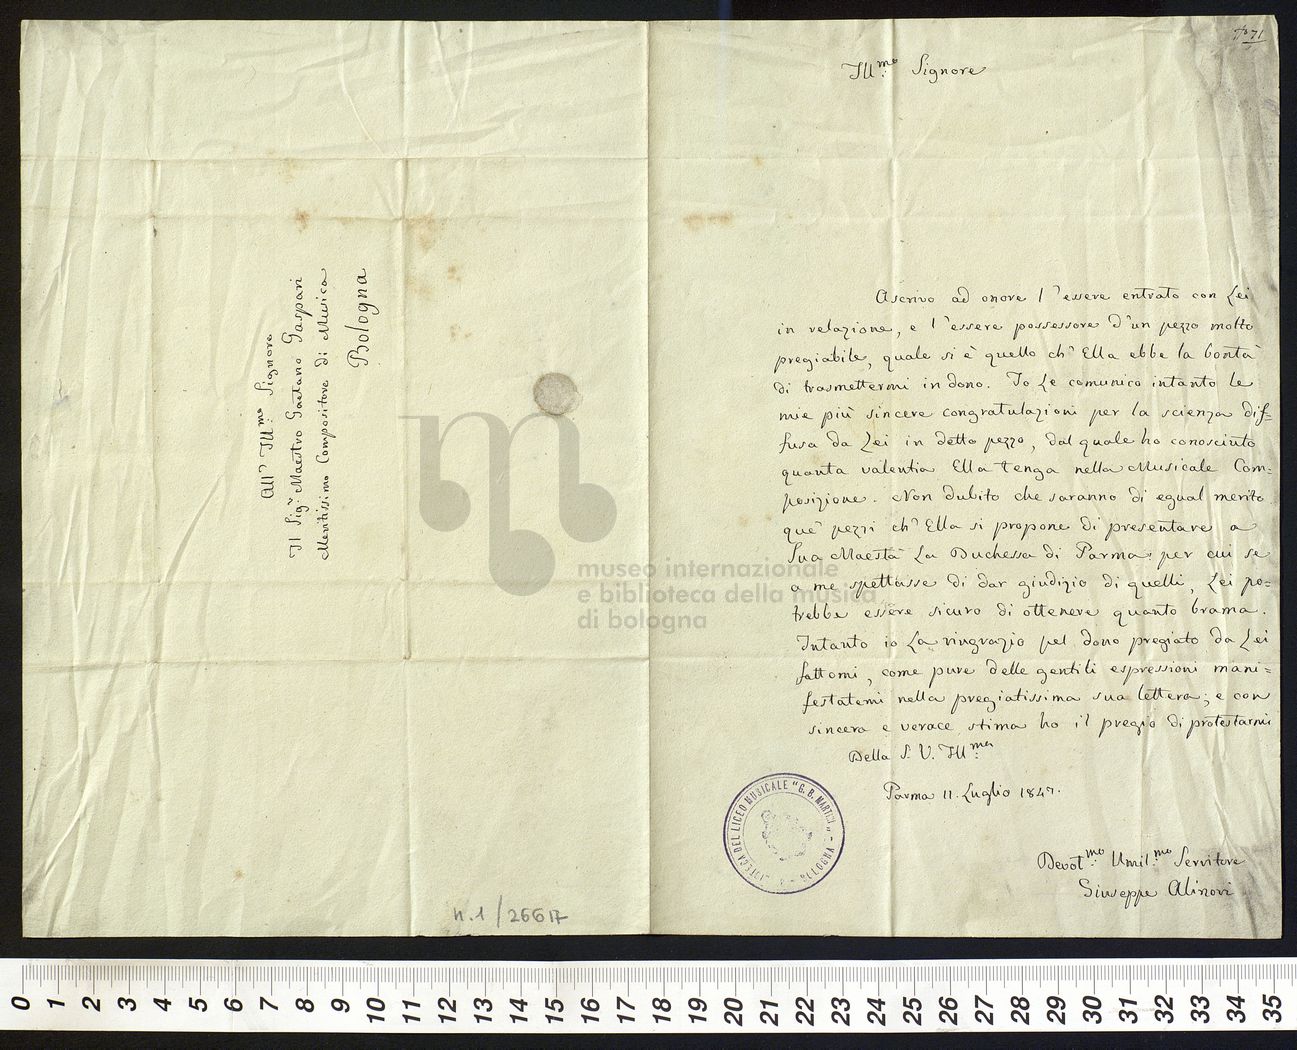 All' Ill.mo Signore
Il Sig.r Maestro Gaetano Gaspari
Meritissimo Compositore di Musica
Bologna
n. 1 / 26617
71
Ill.mo Signore
Ascrivo ad onore l'essere entrato con Lei
in relazione, e l'essere possessore d'un pezzo molto
pregiabile, quale si è quello ch'Ella ebbe la bontà
di trasmettermi in dono. Io Le comunico intanto le
mie più sincere congratulazioni per la scienza dif=
fusa da Lei in detto pezzo, dal quale ho conosciuto
quanta valentia Ella tenga nella Musicale Com=
posizione. Non dubito che saranno di egual merito
que' pezzi ch'Ella si propone di presentare a
Sua Maestà La Duchessa di Parma: per cui se
a me spettasse di dar giudizio di quelli, Lei po=
trebbe essere sicuro di ottenere quanto brama.
Intanto io La ringrazio pel dono pregiato da Lei
fattomi, come pure delle gentili espressioni mani=
festatemi nella pregiatissima sua lettera; e con
sincera e verace stima ho il pregio di protestarmi
Della S. V. Ill.ma
Parma 11. Luglio 1847.
Devot.mo Umil.mo Servitore
Giuseppe Alinovi
LICEO MUSICALE "G. B. MARTINI" - BOLOGNA
museo internazionale
e biblioteca della musica
di bologna
0 1 2 3 4 5 6 7 8 9 10 11 12 13 14 15 16 17 18 19 20 21 22 23 24 25 26 27 28 29 30 31 32 33 34 35